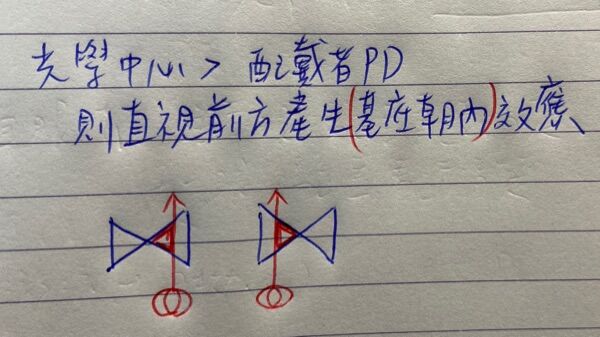 光學中心 > 配戴者PD
則直視前方產生(基底朝內)效應